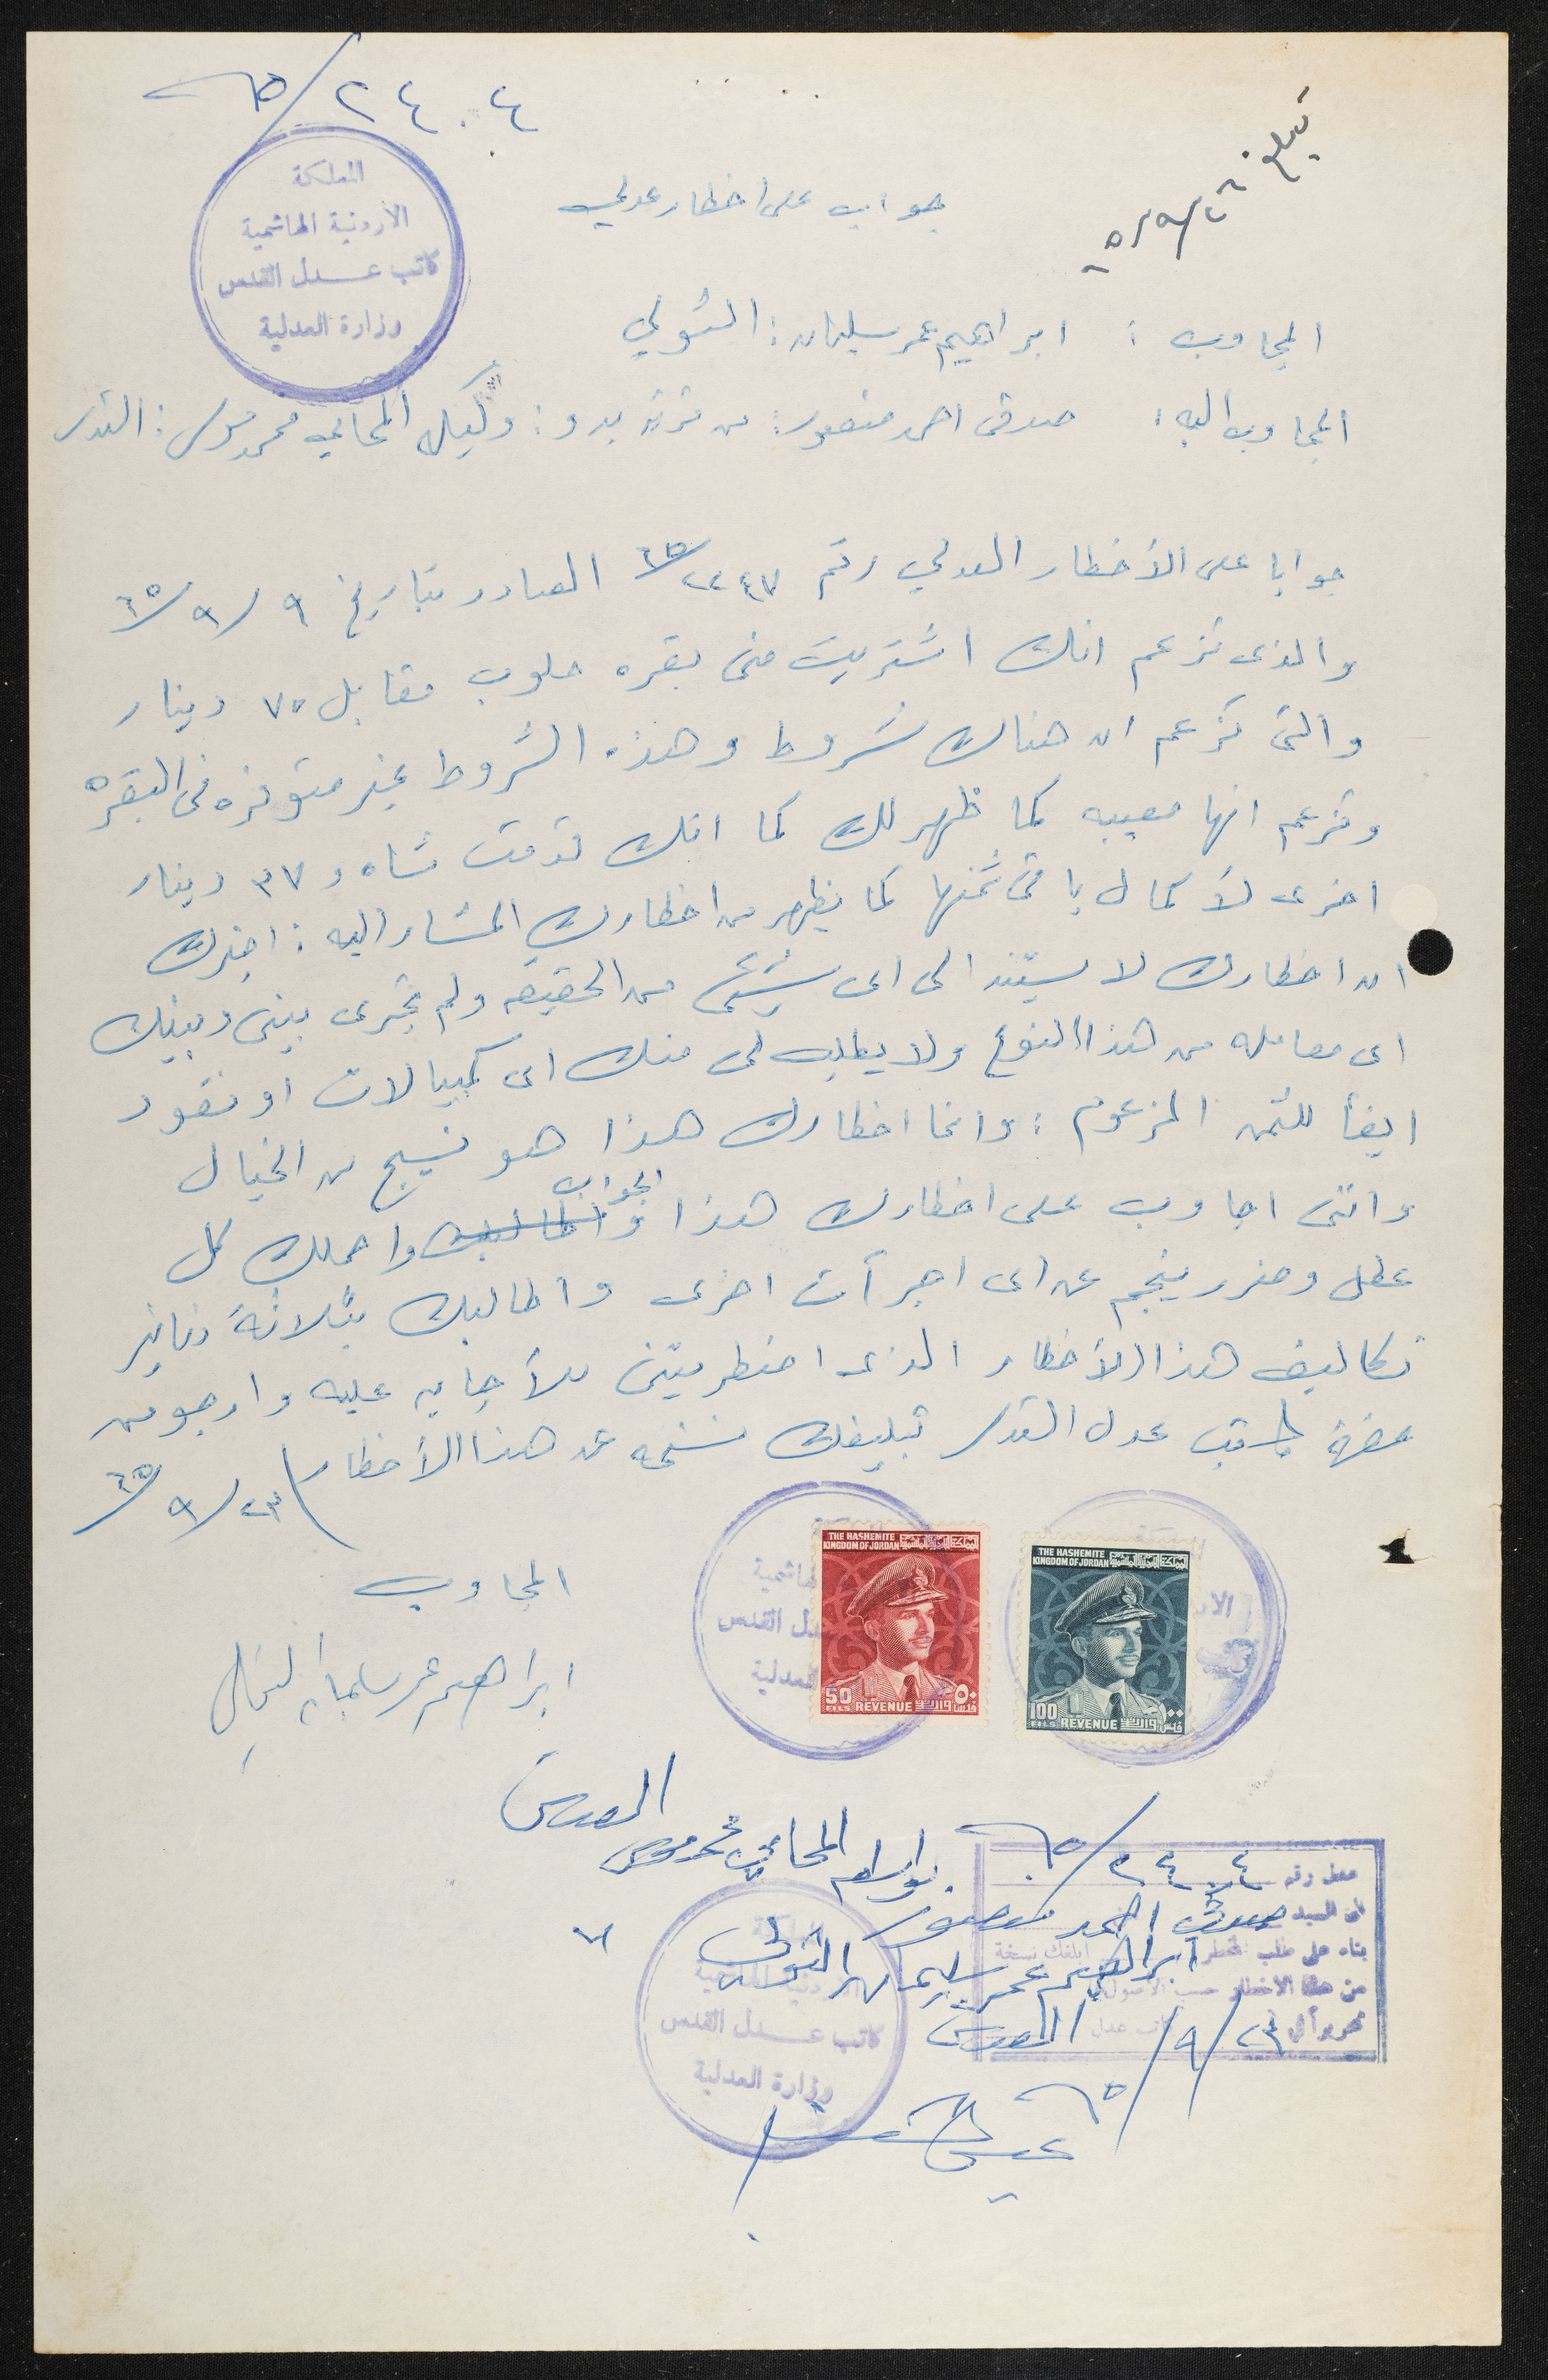 ٦٥/٢٤٠٤
تبلغ
المملكة
الأردنية الهاشمية
كاتب عدل القدس
وزارة العدلية
جواب على اخطار عدلي
المجاوب : ابراهيم عمر سليمان : الثولي
المجاوب اليه : صدقي احمد منصور : من قرية بدو : وكيله المحامي محمد موسى : القدس
جوابا على الأخطار العدلي رقم ٦٥/٢٢٤٧ الصادر بتاريخ ٦٥/٩/٩
والذى تزعم انك اشتريت منى بقره حلوب مقابل ٧٥ دينار
والتى تزعم ان هناك شروط وهذه الشروط غير متوفره فى البقره
وتزعم انها معيبه كما ظهر لك كما انك قدمت شاه و ٣٧ دينار
اخرى لأكمال باقى ثمنها كما يظهر من اخطارك المشار اليه : اخبرك
ان اخطارك لا يستند الى اى شيئ من الحقيقه ولم تجرى بينى وبينك
اى معامله من هذا النوع ولا يطلب لى منك اى كمبيالات او نقود
ايفأ للثمن المزعوم : وانما اخطارك هذا هو نسيج من الخيال
واننى اجاوب على اخطارك هذا الجواب واطالبك واحملك كل
عطل وضرر ينجم عن اى اجرآت اخرى واطالبك بثلاثة دنانير
تكاليف هذا الأخطار الذى اضطريتنى للأجابه عليه وارجو من
حضرة كاتب عدل القدس تبليغك نسخه عن هذا الأخطار ٦٥/٩/٢٣
المجاوب
ابراهيم عمر سليمان
هاشمية
عدل القدس
العدلية
THE HASHEMITE KINGDOM OF JORDAN المملكة الأردنية الهاشمية
50 FILS REVENUE واردات ٥٠ فلس
THE HASHEMITE KINGDOM OF JORDAN المملكة الأردنية الهاشمية
100 FILS REVENUE واردات ١٠٠ فلس
القدس
بواسطة المحامي محمد موسى
سجل رقم ٦٥/٢٤٠٤
الى السيد صدقي احمد منصور
بناء على طلب المخطر ابراهيم عمر سليمان الثولي ابلغك نسخة
من هذا الاخطار حسب الاصول
تحريرا في ٦٥/٩/٢٣ كاتب عدل القدس
كاتب عدل القدس
وزارة العدلية